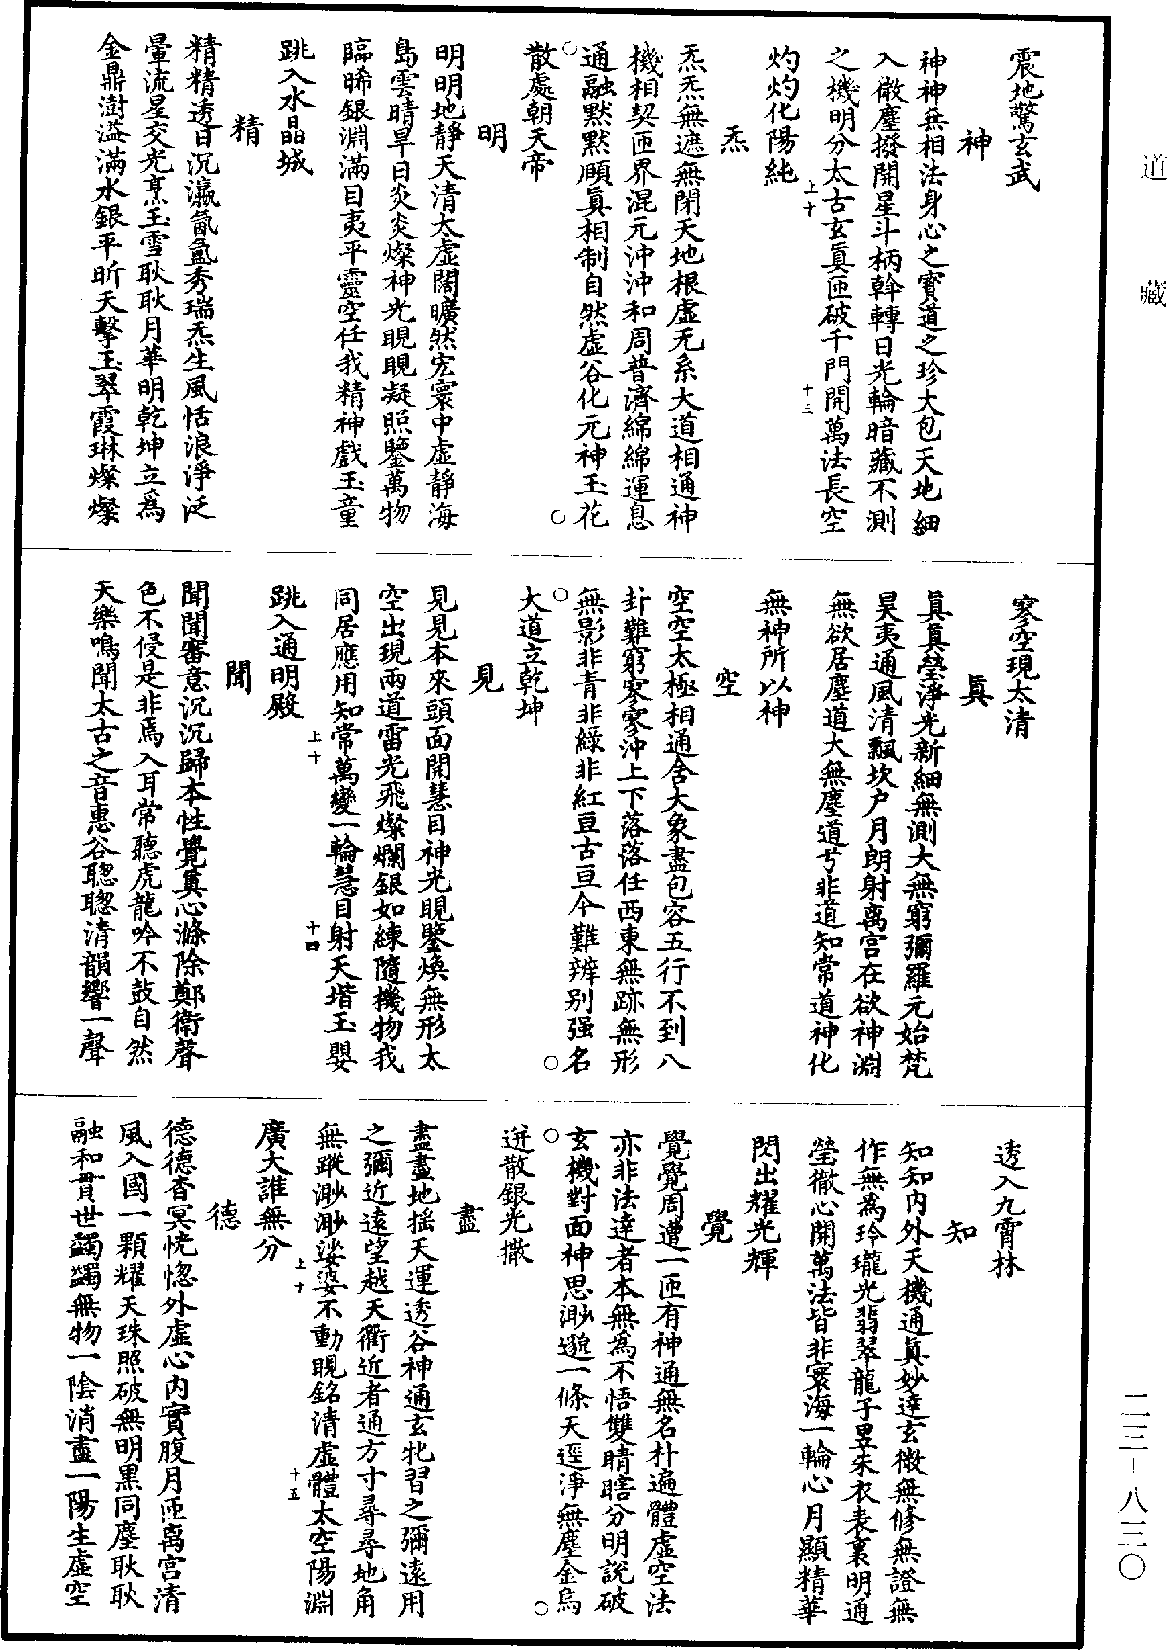 道藏
震地驚玄武
神
神神無相法身心之寶道之珍大包天地細
入微塵撥開星斗柄斡轉日光輪暗藏不測
之機明分太古玄眞匝破千門開萬法長空
上十
十三
灼灼化陽純
炁
炁炁無遮無閉天地根虛无系大道相通神
機相契匝界混元沖沖和周普濟綿綿運息
通融默默頤眞相制自然虛谷化元神玉花
散處朝天帝
明
明明地靜天清太虛闊曠然宏寥中虛靜海
島雲晴旱日炎炎燦神光晛晛凝照鑒萬物
臨晞銀淵滿目夷平靈空任我精神戲玉童
跳入水晶城
精
精精透日沉瀛氤氳秀瑞炁生風恬浪淨泛
暈流星交光烹玉雪耿耿月華明乾坤立爲
金鼎澍溢滿水銀平昕天擊玉翠霞琳燦燦
寥空現太清
眞
眞眞瑩淨光新細無測大無窮彌羅元始梵
昊夷通風清飄坎户月朗射离宮在欲神淵
無欲居塵道大無塵道兮非道知常道神化
無神所以神
空
空空太極相通含大象盡包容五行不到八
卦難窮寥寥沖上下落落任西東無跡無形
無影非青非綠非紅亘古亘今難辨别强名
大道立乾坤
見
見見本來頭面開慧目神光晛鑒煥無形太
空出現兩道雷光飛燦爛銀如練隨機物我
同居應用知常萬變一輪慧目射天堦玉嬰
上十
十四
跳入通明殿
聞
聞聞審意沉沉歸本性覺真心滌除鄭衛聲
色不侵是非焉入耳常聽虎龍吟不鼓自然
天樂鳴聞太古之音惠谷聰聰清韻響一聲
透入九霄林
知
知知内外天機通眞妙達玄微無修無證無
作無為玲瓏光翡翠龍子昱朱衣表裏明通
瑩徹心開萬法皆非寥海一輪心月顯精華
閃出耀光輝
覺
覺覺周遭一匝有神通無名朴遍體虛空法
亦非法達者本無為不悟雙睛瞎分明說破
玄機對面神思渺邈一條天逕淨無塵金烏
迸散銀光撒
盡
盡盡地摇天運透谷神通玄牝習之彌遠用
之彌近遠望越天衢近者通方寸尋尋地角
無蹤渺渺娑婆不動晛銘清虛體太空陽淵
上十
十五
廣大誰無分
德
德德杳冥恍惚外虛心内實腹月匝离宮清
風入國一顆耀天珠照破無明黑同塵耿耿
融和貫世蠲蠲無物一陰消盡一陽生虛空
二三－八三〇